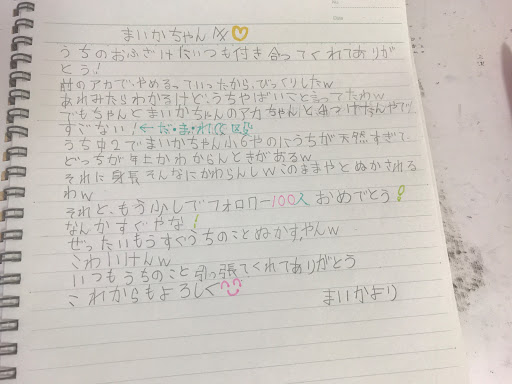 まいかちゃんへ
うちのおふざけにいつも付き合ってくれてありが
とう!
前のアカでやめるっていったから、びっくりしたw
あれみたらわかるけど、うちやばいてと言ってたわw
でもちゃんとまいかちゃんのアカちゃんと みつけたんやで!
すごない!←だ・ま・れ
うち中2でまいかちゃん小6やのにうちが天然すぎて
どっちが年上かわからんときがあるw
それに身長そんなにかわらんしwこのままやとぬかされる
わw
それと、もう少しでフォロワー100人おめでとう!
なんかすぐやな!
ぜったいもうすぐうちのことぬかすやんw
こわいけんw
いつもうちのこと引っ張てくれてありがとう
これからもよろしく
まいかより